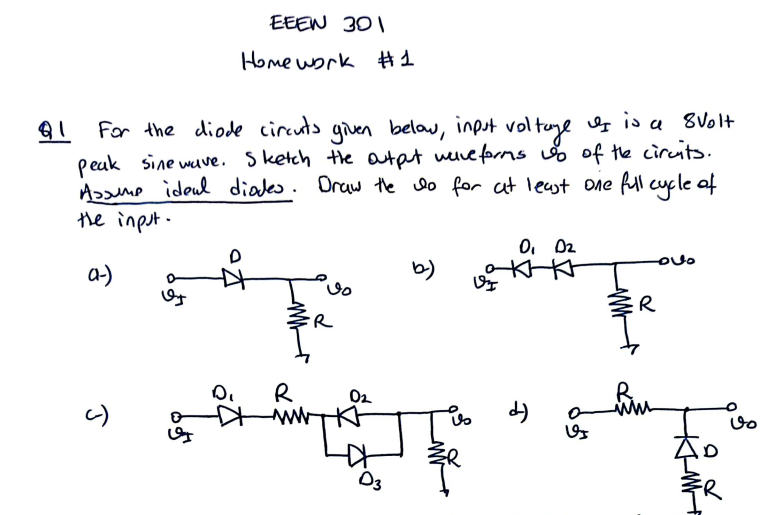 EEEN 301
Homework #1
Q1 For the diode circuits given below, input voltage vI is a 8Volt
peak sine wave. Sketch the output waveforms vo of the circuits.
Assume ideal diodes. Draw the vo for at least one full cycle of
the input.
a-)
D
vI
vo
R
b)
D1 D2
vI
vo
R
c)
D1 R D2
vI
vo
R
D3
d)
R
vI
vo
D
R